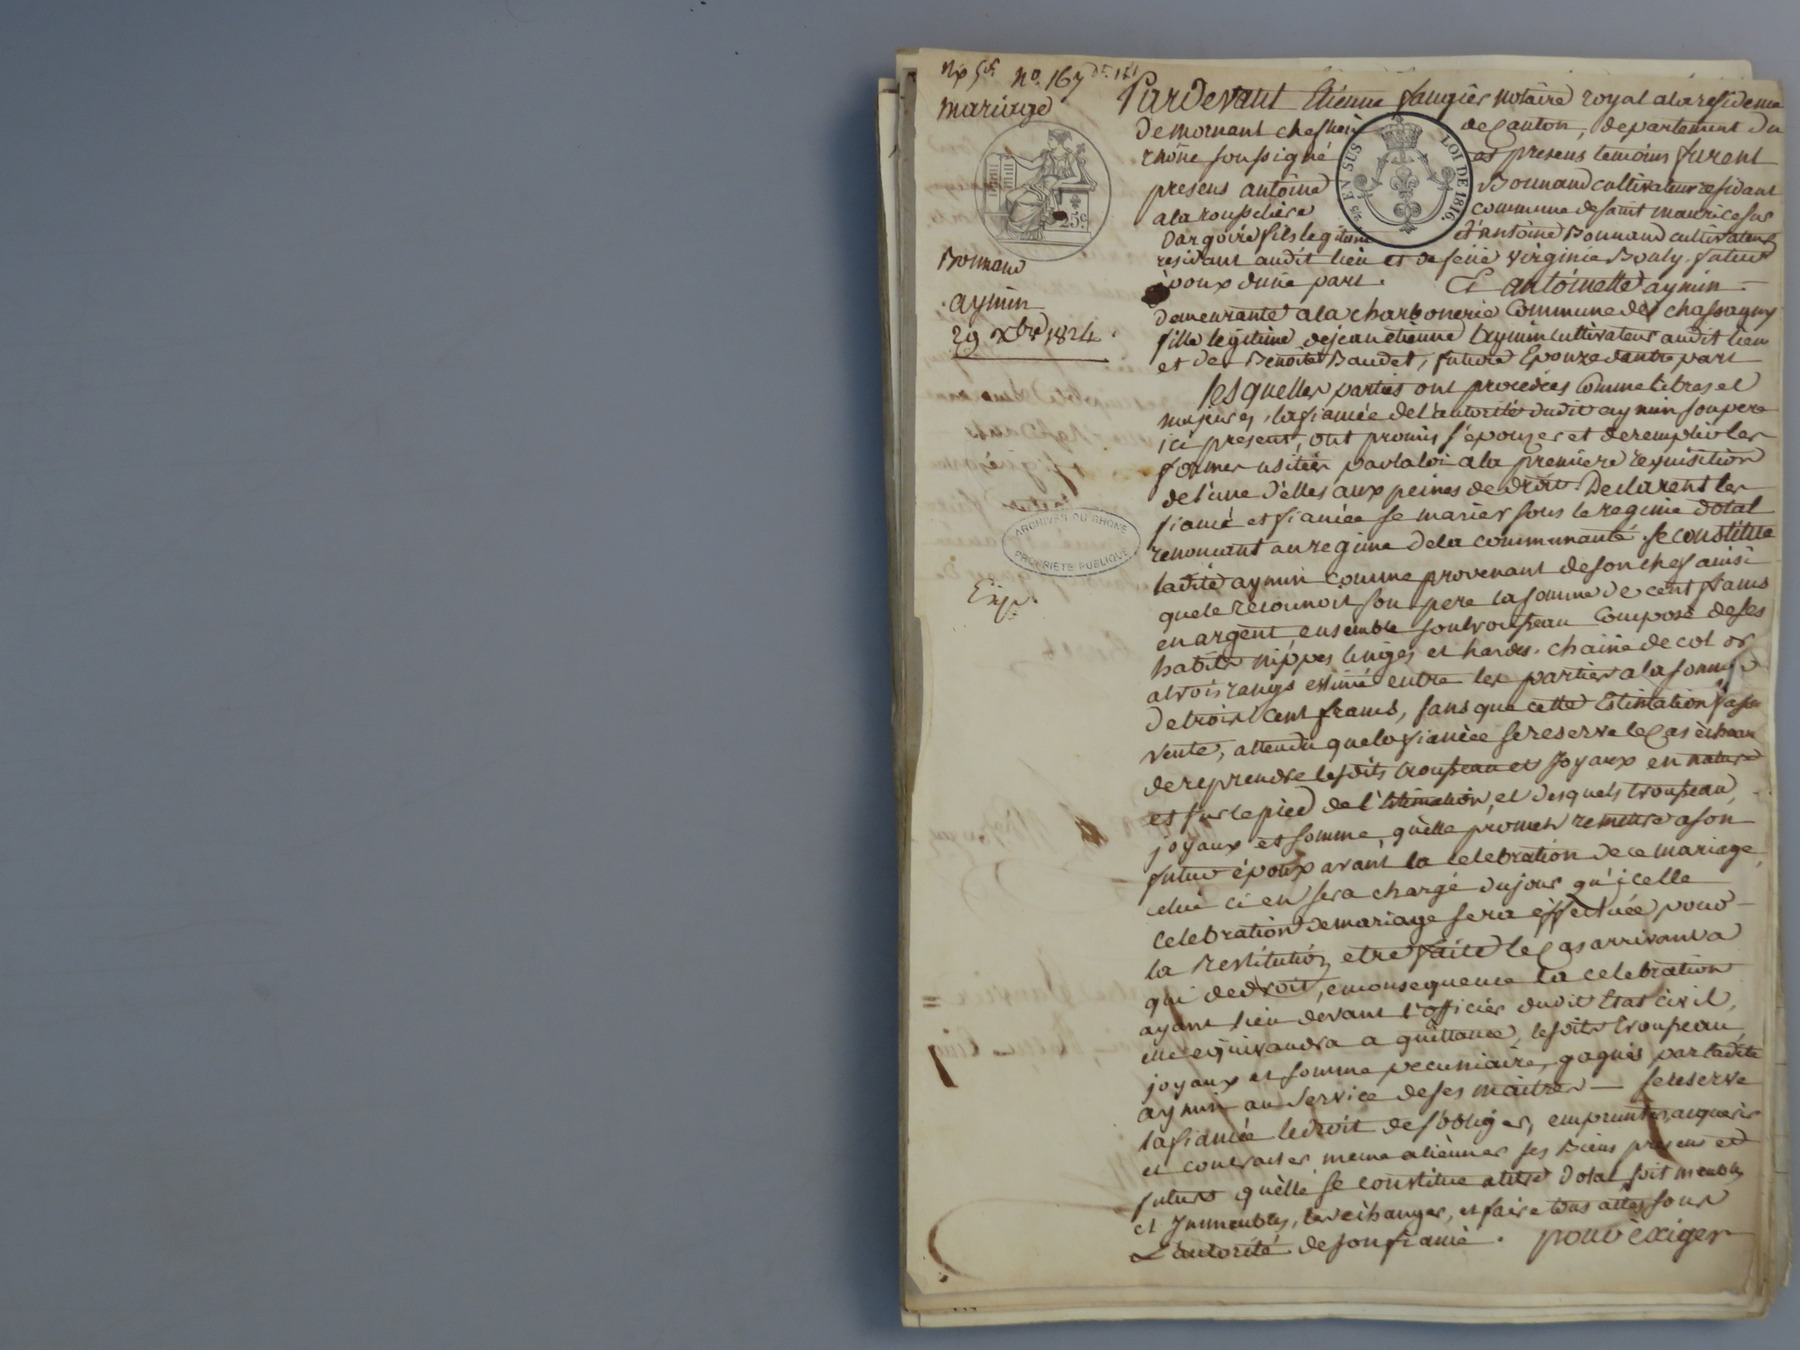 n° 167
mariage
Bonnand
aymin
29 xbre 1824
Exp.
25 c.
25 EN SUS LOI DE 1816.
ARCHIVES DU RHÔNE
PROPRIÉTÉ PUBLIQUE
Pardevant Etienne faugier notaire royal ala residence
de mornant chef lieu de Canton, departement du
rhône soussigné et presens temoins furent
presens antoine Bonnand cultivateur residant
ala roussilière commune de saint maurice sur
Dargoire fils legitime d'antoine Bonnand cultivateur
residant audit lieu et de feüe virginie Bouly futur
époux dune part. Et antoinette aymin
demeurante ala charbonerie Commune de chassagny
fille légitime de jean etienne Aymin cultivateur audit lieu
et de Benoite Baudet, future Epouze dautre part
lesquelles parties ont procédées Comme libres et
majures, la fiancée de l'autorité dudit aymin son pere
ici present, ont promis s'épouzer et de remplir les
formes usitées par la loi ala première requisition
de l'une d'elles aux peines de droit. Declarent les
fiancé et fiancée se marier sous le regime dotal
renoncant au regime de la communauté. se constitue
ladite aymin comme provenant de son chef ainsi
que le reconnoit son pere la somme de cent francs
en argent, ensemble son trousseau Composé de ses
habits nippes linges et hardes, chaine de col or
a trois rangs estimé entre les parties a la somme
de trois Cent francs, sans que cette Estimation fasse
vente, attendu que la fiancée se reserve le Cas écheant
de reprendre lesdits trousseau et joyaux en nature
et sur le pied de l'Estimation, et desquels trousseau,
joyaux et somme, qu'elle promet remettre a son
futur époux avant la celebration de ce mariage
celui ci en sera chargé du jour qu'icelle
Celebration de mariage sera éffectuée pour
la Restitution etre faite le Cas arrivant a
qui de droit, enconsequence la celebration
ayant lieu devant l'officier dudit Etat civil,
elle equivaudra a quittance, lesdits trousseau,
joyaux et somme pecuniaire, gagnés par ladite
aymin au Service de ses maitres — se reserve
la fiancée le droit de s'obliger, emprunter, acquerir
et contracter meme aliènner ses Biens presens et
futurs quèlle se constitue atitre dotal soit meubles
et Immeubles, les échanger, et faire tous actes sous
L'autorité de son fiancé. pour èxiger